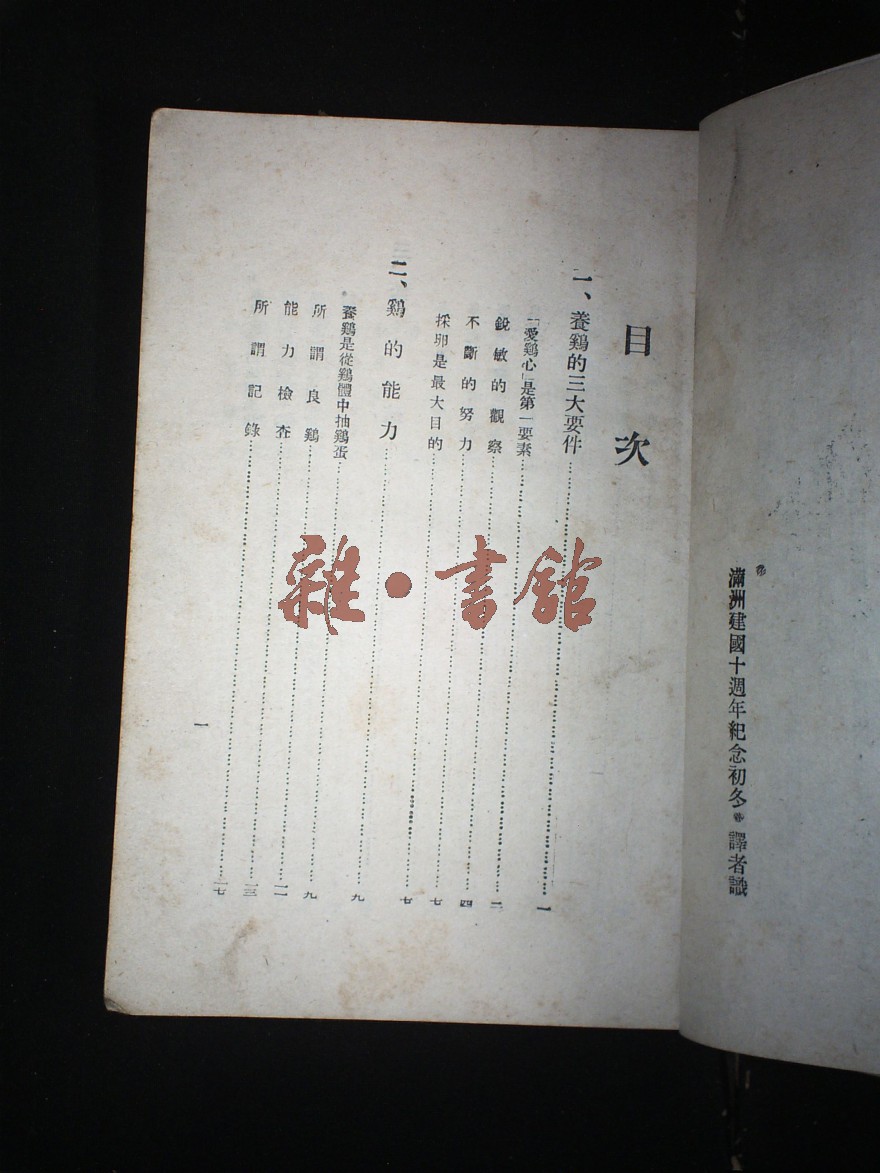 滿洲建國十週年紀念初冬 譯者識
目次
一、養鷄的三大要件……一
「愛鷄心」是第一要素……二
銳敏的觀察……四
不斷的努力……七
採卵是最大目的……七
二、鷄的能力……九
養鷄是從鷄體中抽鷄蛋……九
所謂良鷄
能力檢查……一三
所謂記錄……一七
一
雜·書館